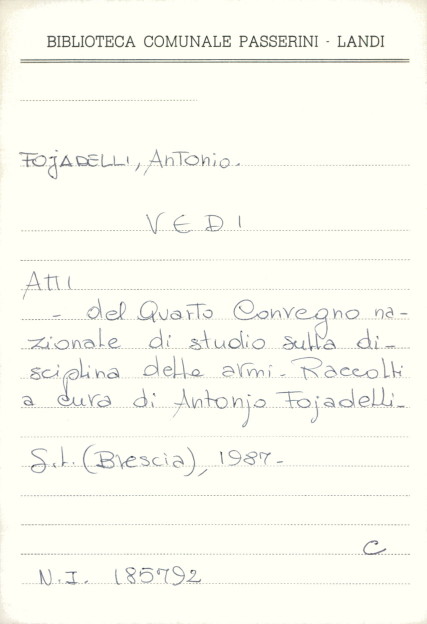 BIBLIOTECA COMUNALE PASSERINI - LANDI
FOJADELLI, Antonio.
VEDI
Atti
- del Quarto Convegno na-
zionale di studio sulla di-
sciplina delle armi - Raccolti
a cura di Antonjo Fojadelli -
S.l. (Brescia), 1987 -
C
N.I. 185792